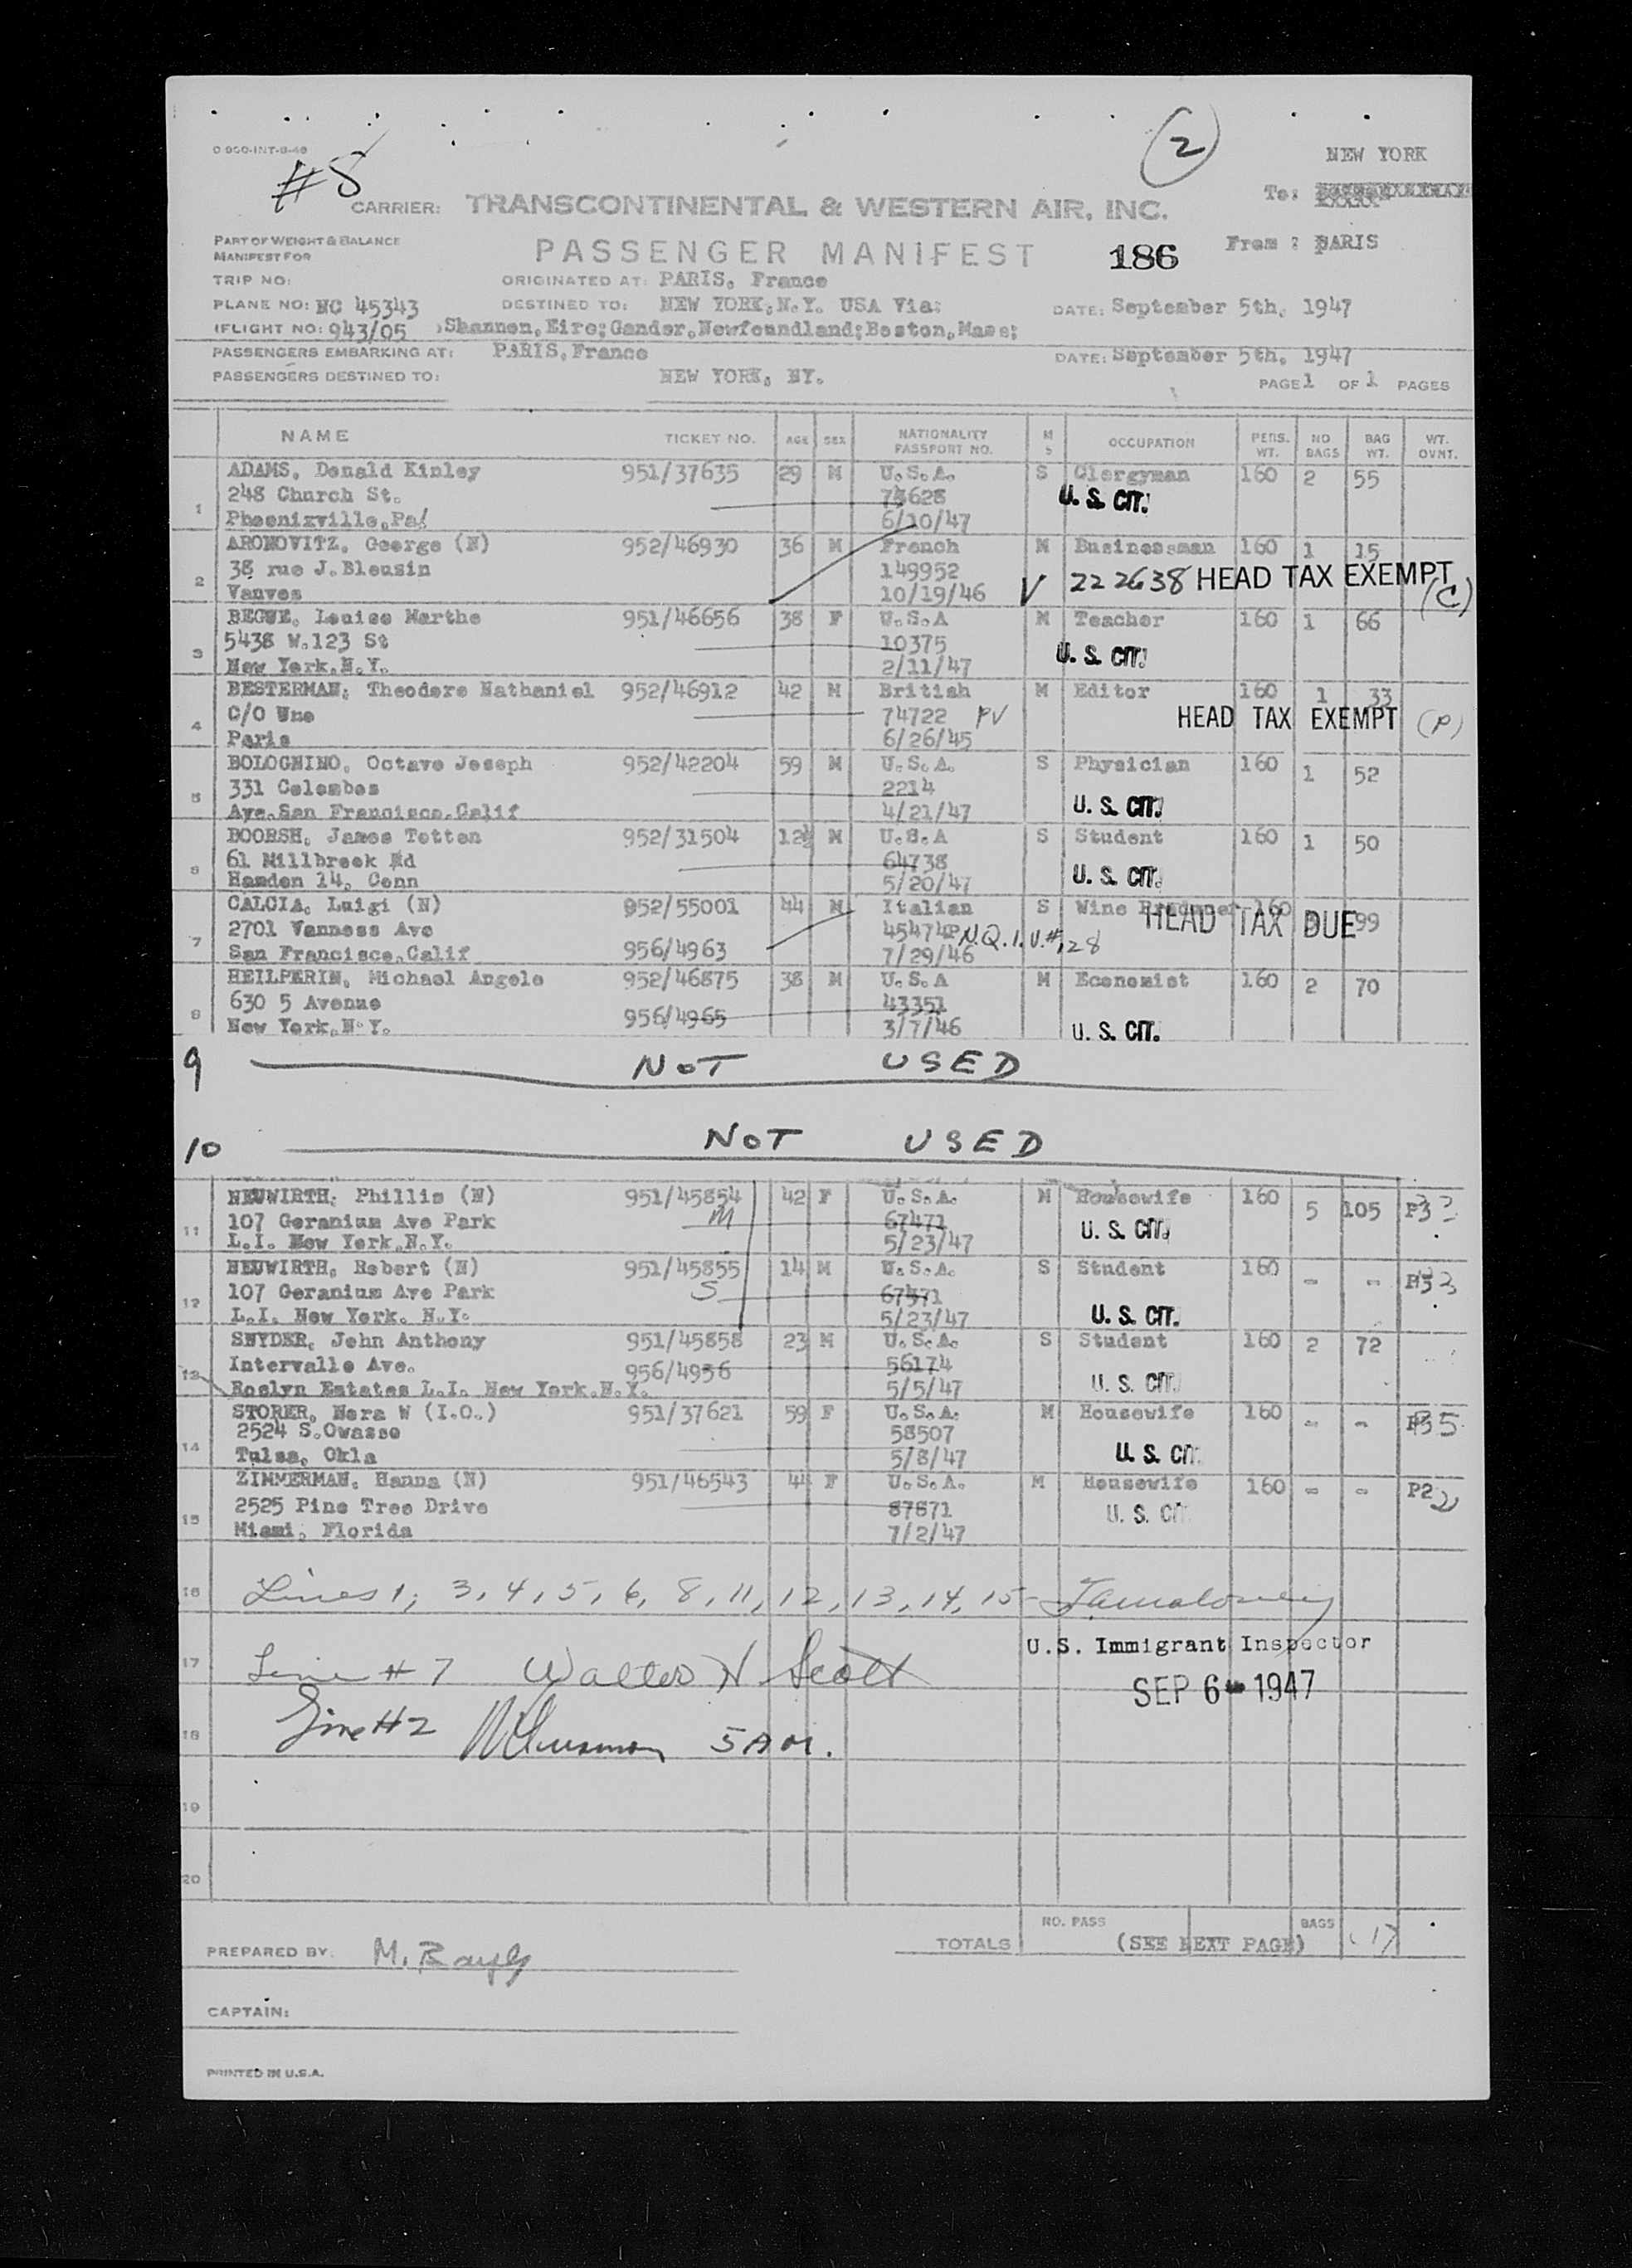 O 900-INT-8-46
#8
2
NEW YORK
To:
CARRIER: TRANSCONTINENTAL & WESTERN AIR, INC.
PART OF WEIGHT & BALANCE
MANIFEST FOR
PASSENGER MANIFEST 186 From : PARIS
TRIP NO: ORIGINATED AT: PARIS, France
PLANE NO: NC 45343 DESTINED TO: NEW YORK, N.Y. USA Via: DATE: September 5th, 1947
FLIGHT NO: 943/05 Shannon, Eire; Gander, Newfoundland; Boston, Mass;
PASSENGERS EMBARKING AT: PARIS, France DATE: September 5th, 1947
PASSENGERS DESTINED TO: NEW YORK, NY. PAGE 1 OF 1 PAGES
NAME TICKET NO. AGE SEX NATIONALITY PASSPORT NO. M S OCCUPATION PERS. WT. NO BAGS BAG WT. WT. OVNT.
1 ADAMS, Donald Kinley 951/37635 29 M U.S.A. S Clergyman 160 2 55
248 Church St. U. S. CIT.
Phoenixville, Pa. 6/10/47
2 ARONOVITZ, George (N) 952/46930 36 M French M Businessman 160 1 15
38 rue J. Bleusin 149952 222638 HEAD TAX EXEMPT
Vanves 10/19/46 V (C)
3 BEGUE, Louise Marthe 951/46656 38 F U.S.A M Teacher 160 1 66
5438 W.123 St 10375 U. S. CIT.
New York, N.Y. 2/11/47
4 BESTERMAN, Theodore Nathaniel 952/46912 42 M British M Editor 160 1 33
C/O Uno 74722 PV HEAD TAX EXEMPT (P)
Paris 6/26/45
5 BOLOGNINO, Octave Joseph 952/42204 59 M U.S.A. S Physician 160 1 52
331 Colombos 2214
Ave. San Francisco, Calif 4/21/47 U. S. CIT.
6 BOORSH, James Totten 952/31504 12½ M U.S.A S Student 160 1 50
61 Millbrook Rd 64738
Hamden 14, Conn 5/20/47 U. S. CIT.
7 CALCIA, Luigi (N) 952/55001 44 M Italian S Wine Producer 160 99
2701 Vanness Ave 45474P N.Q.I.V.#128 HEAD TAX DUE
San Francisco, Calif 956/4963 7/29/46
8 HEILPERIN, Michael Angelo 952/46875 38 M U.S.A M Economist 160 2 70
630 5 Avenue 43351
New York, N.Y. 956/4965 3/7/46 U. S. CIT.
9 NOT USED
10 NOT USED
11 NEUWIRTH, Phillis (N) 951/45854 42 F U.S.A. M Housewife 160 5 105
107 Geranium Ave Park M 67471 U. S. CIT.
L.I. New York, N.Y. 5/23/47
12 NEUWIRTH, Robert (N) 951/45855 14 M U.S.A. S Student 160 - -
107 Geranium Ave Park S
L.I. New York. N.Y. 5/23/47 U. S. CIT.
13 SNYDER, John Anthony 951/45858 23 M U.S.A. S Student 160 2 72
Intervalle Ave. 956/4936 56174
Roslyn Estates L.I. New York.N.Y. 5/5/47 U. S. CIT.
14 STORER, Nora W (I.O.) 951/37621 59 F U.S.A. M Housewife 160 - -
2524 S. Owasso 58507
Tulsa, Okla 5/8/47 U. S. CIT.
15 ZIMMERMAN, Hanna (N) 951/46543 44 F U.S.A. M Housewife 160 - - P2
2525 Pine Tree Drive 87871 U. S. CIT.
Miami, Florida 7/2/47
16 Lines 1, 3, 4, 5, 6, 8, 11, 12, 13, 14, 15 -
U.S. Immigrant Inspector
17 Line # 7 Walter H Scott
SEP 6 - 1947
18 Line #2 5 AM.
19
20
NO. PASS BAGS
TOTALS (SEE NEXT PAGE)
PREPARED BY:
CAPTAIN:
PRINTED IN U.S.A.